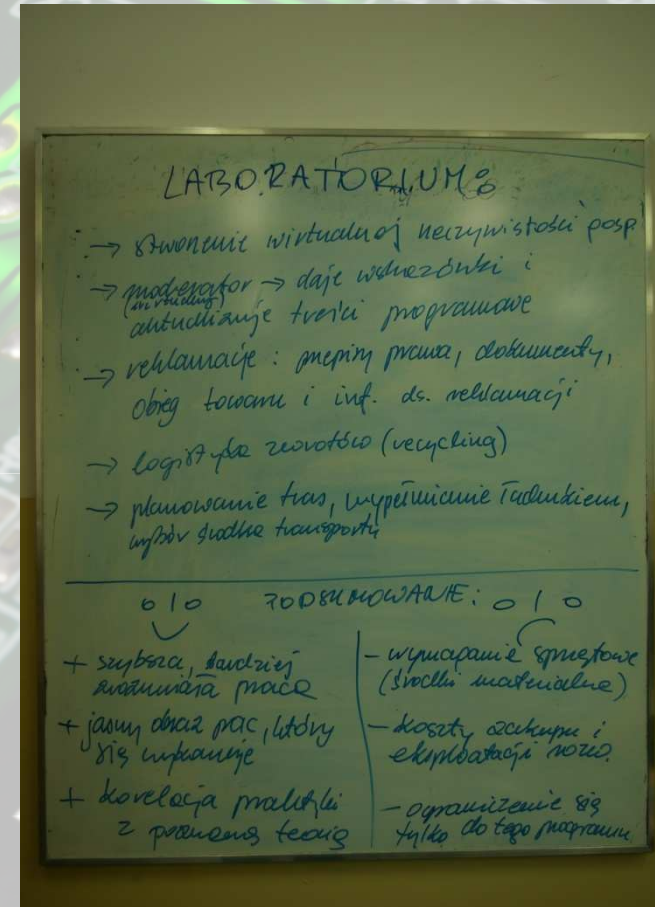 LABORATORIUM:
→ stworzenie wirtualnej rzeczywistości gosp.
→ moderator → daje wskazówki i
aktualizuje treści programowe
→ reklamacje: przepisy prawa, dokumenty,
obieg towaru i inf. ds. reklamacji
→ logistyka zwrotów (recycling)
→ planowanie tras, wypełnianie ładunkiem,
wybór środka transportu
PODSUMOWANIE:
+ szybsza, bardziej
zrozumiała praca
+ jasny obraz prac, który
się wykonuje
+ korelacja praktyki
z poznaną teorią
- wymagania sprzętowe
(środki materialne)
- koszty zakupu i
eksploatacji
- ograniczenie się
tylko do tego programu